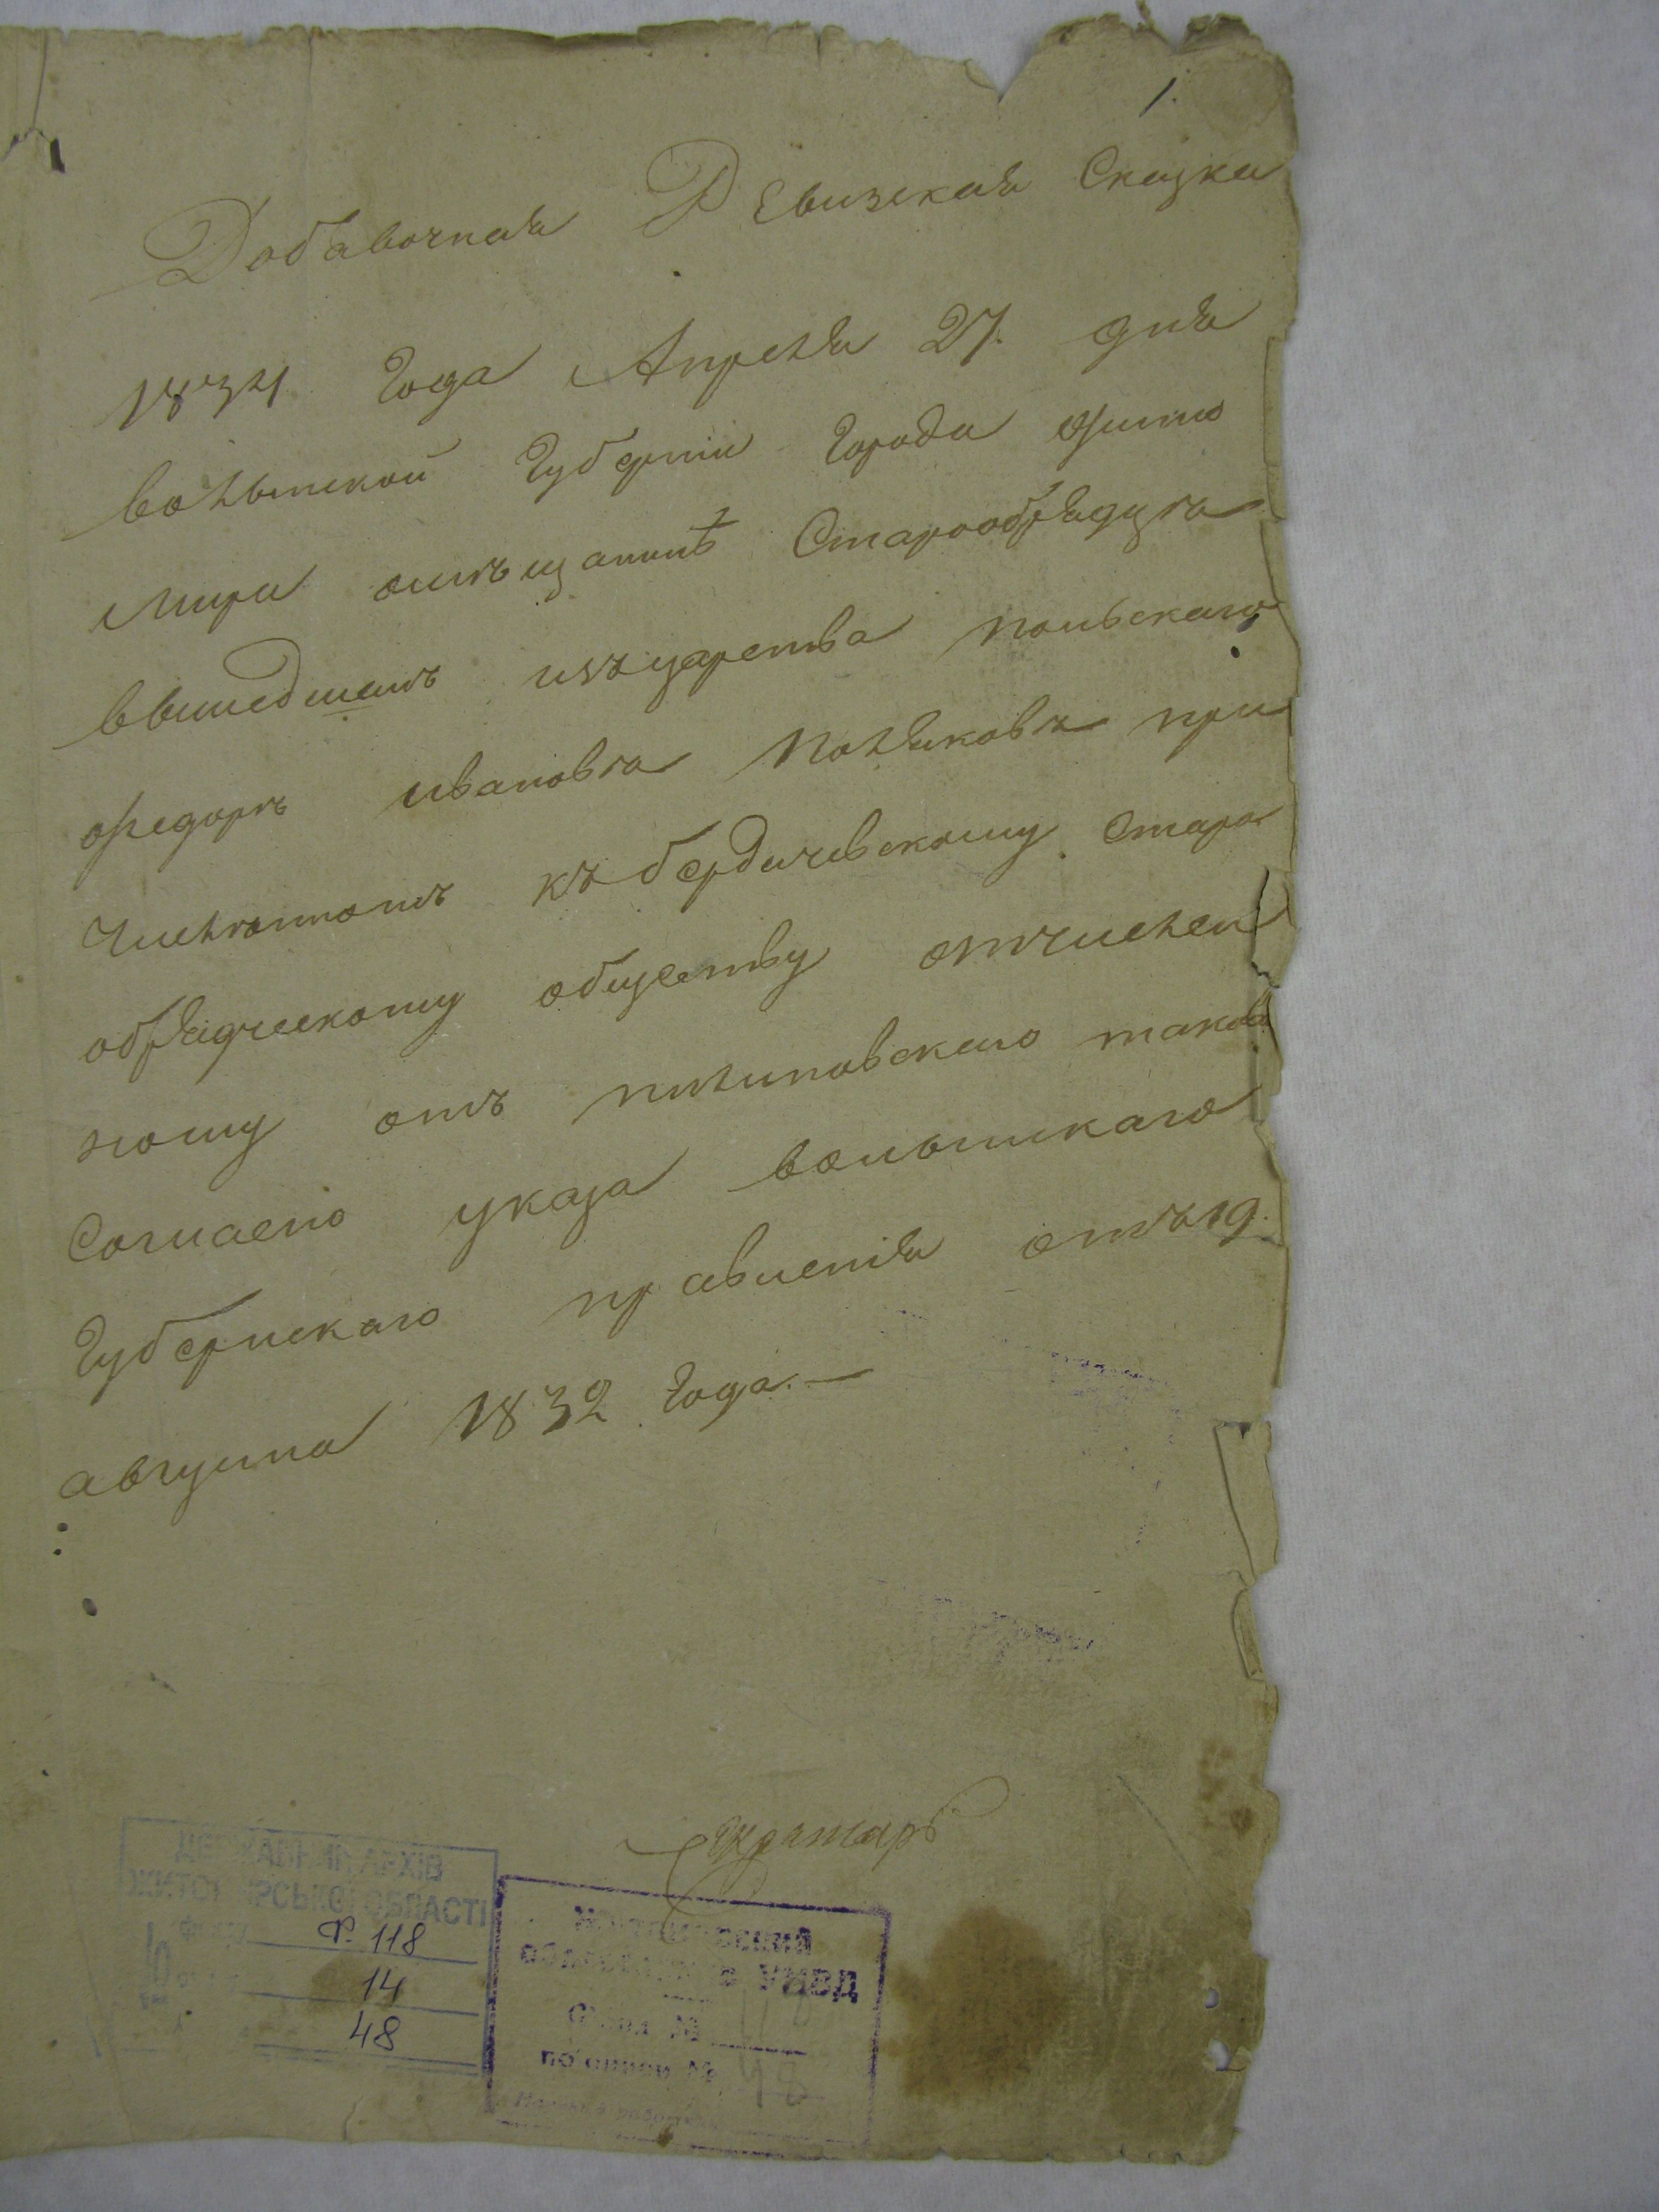 1.
Добавочная Ревизская Сказка
1834 Года Апреля 27. дня
волынской Губерніи Города Жито
мира омѣщанинѣ Старообрядцѣ
вышедшемъ изъ царства польскаго
Федорѣ ивановѣ Поляковѣ при
численномъ къ бердичевскому Старо
обрядческому обществу отчислен
ному отъ пилиповскаго таково
Согласно указа волынскаго
Губернскаго правленія отъ 19.
августа 1832 Года.—
Секретарь
ДЕРЖАВНИЙ АРХІВ
ЖИТОМИРСЬКОЇ ОБЛАСТІ
Фонд Ф. 118
14
48
Житомирский
облгосархив УНВД
Фонд № 118
по описи № 48